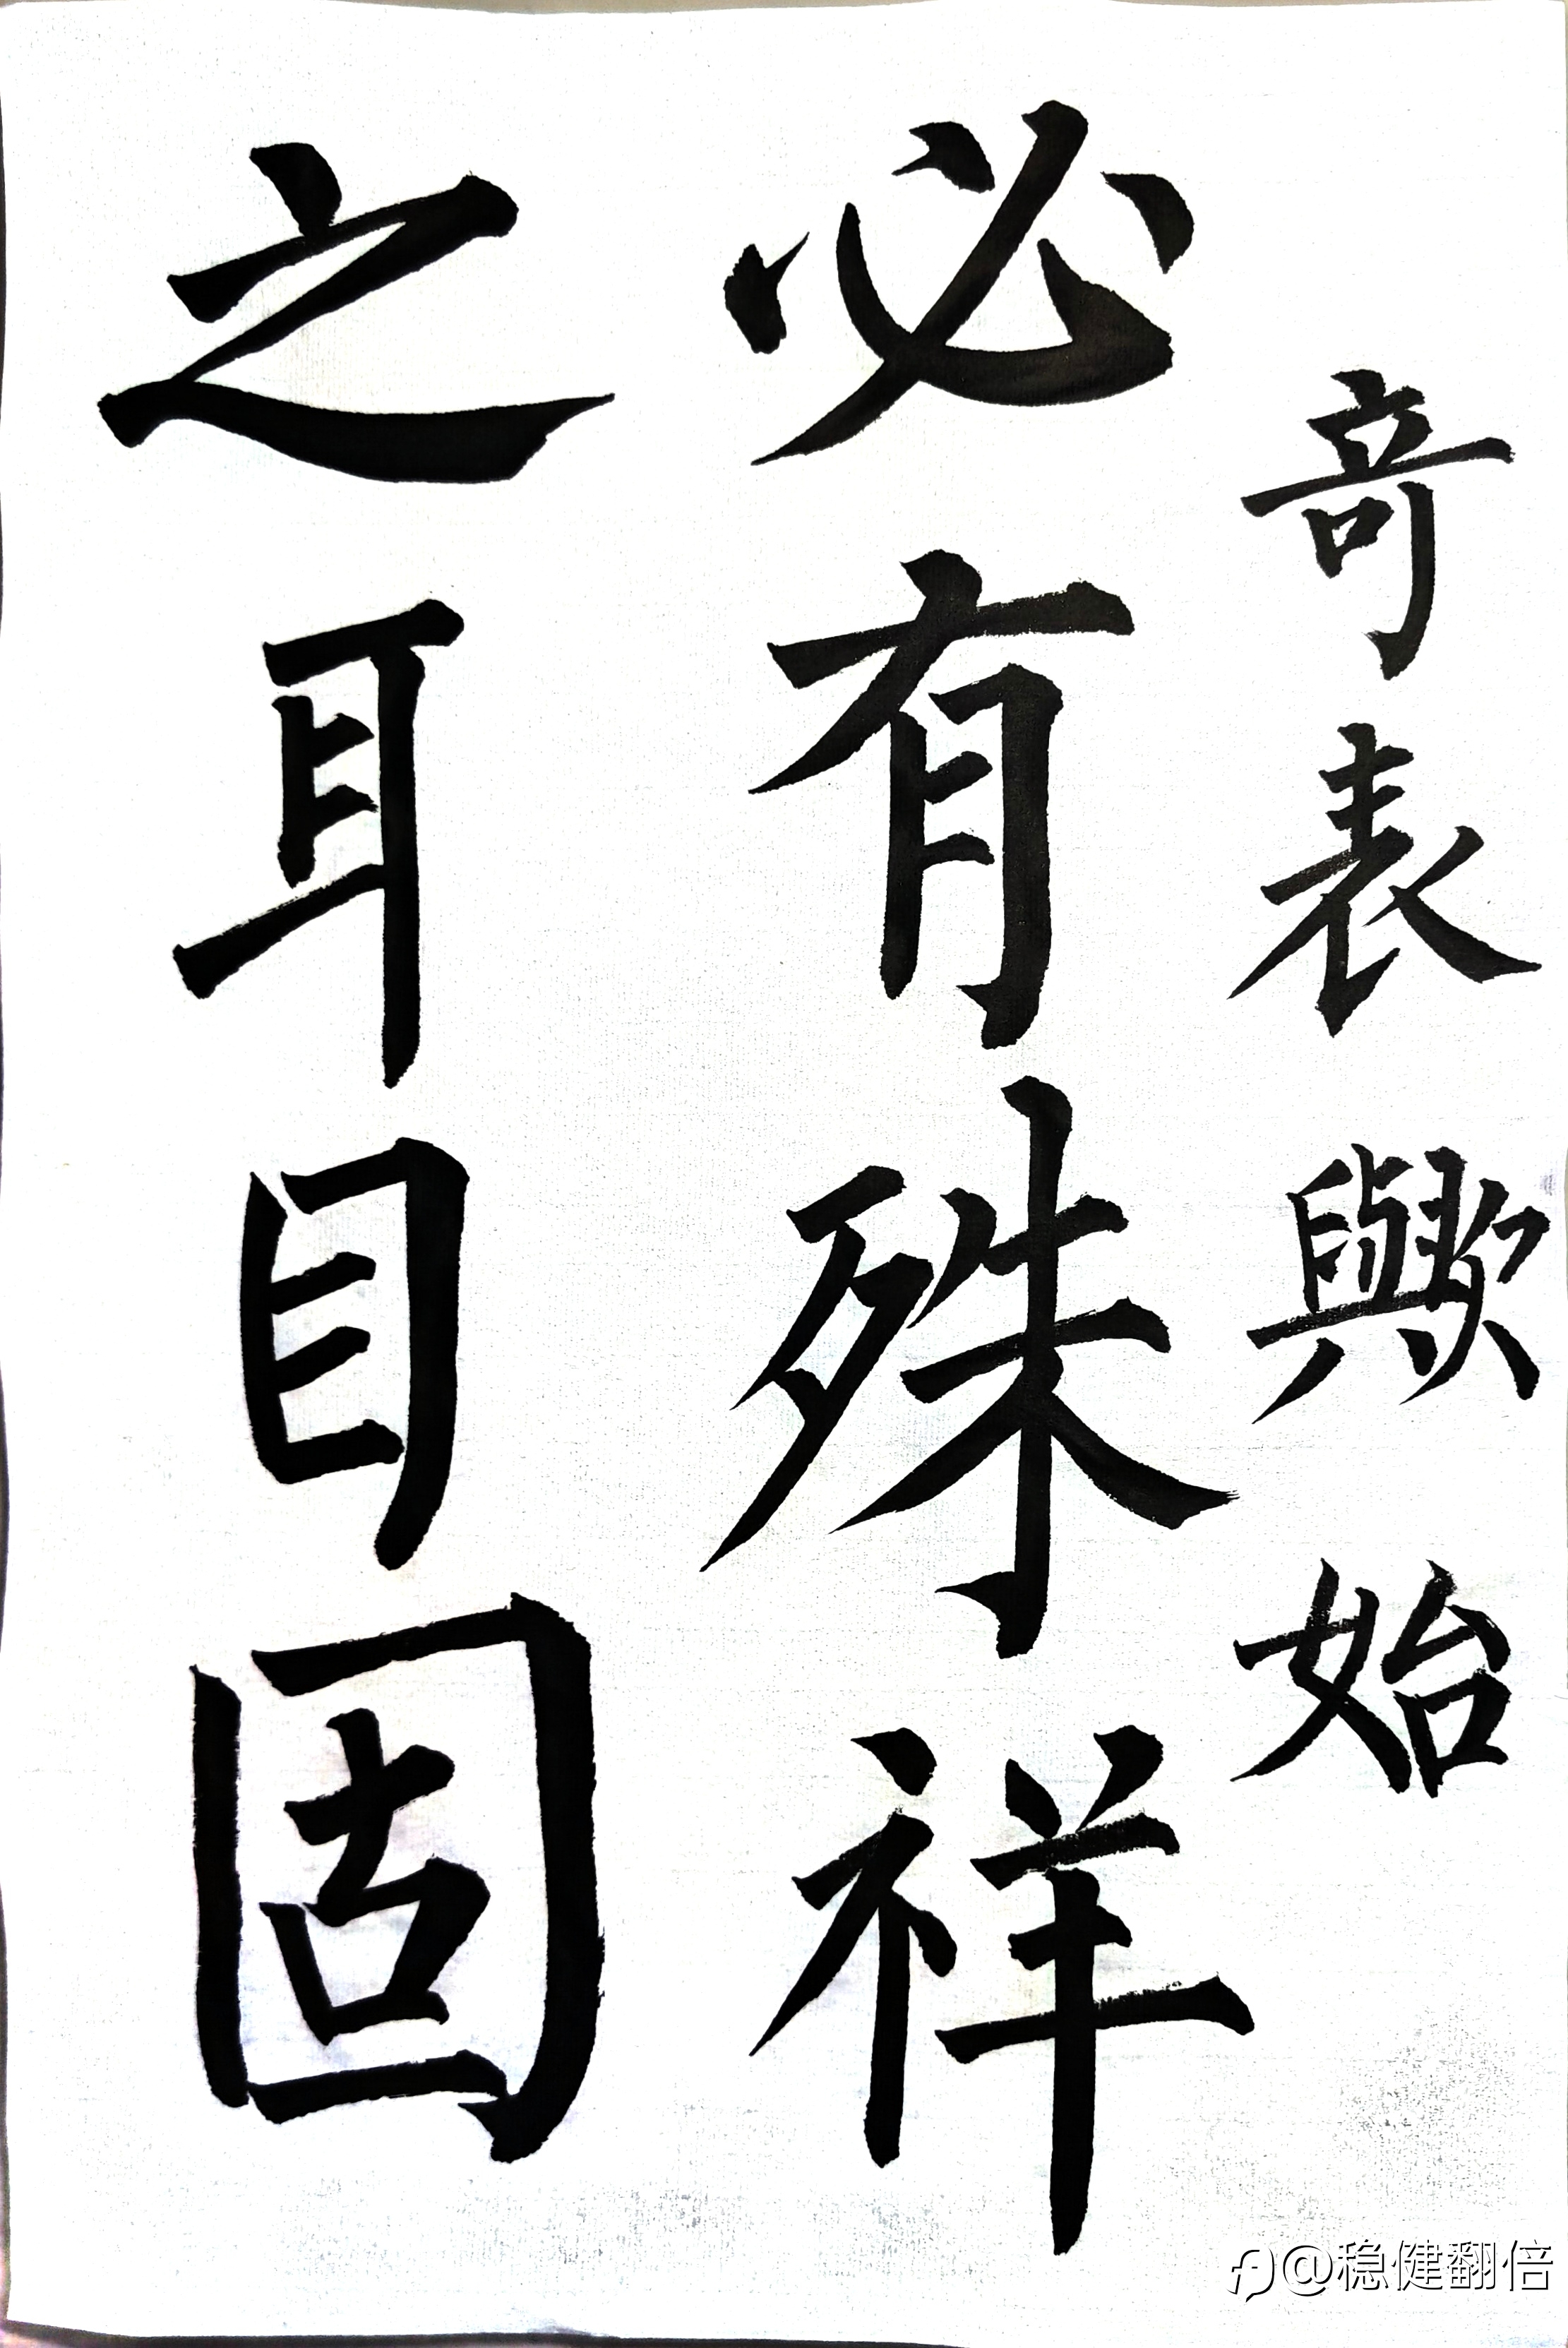 竒表歟始
必有殊祥
之耳目固
@稳健翻倍